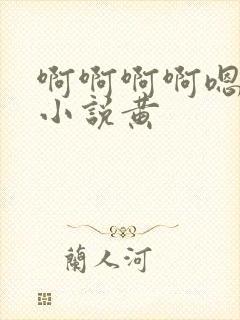 啊啊啊啊嗯
小説黄
蘭人河